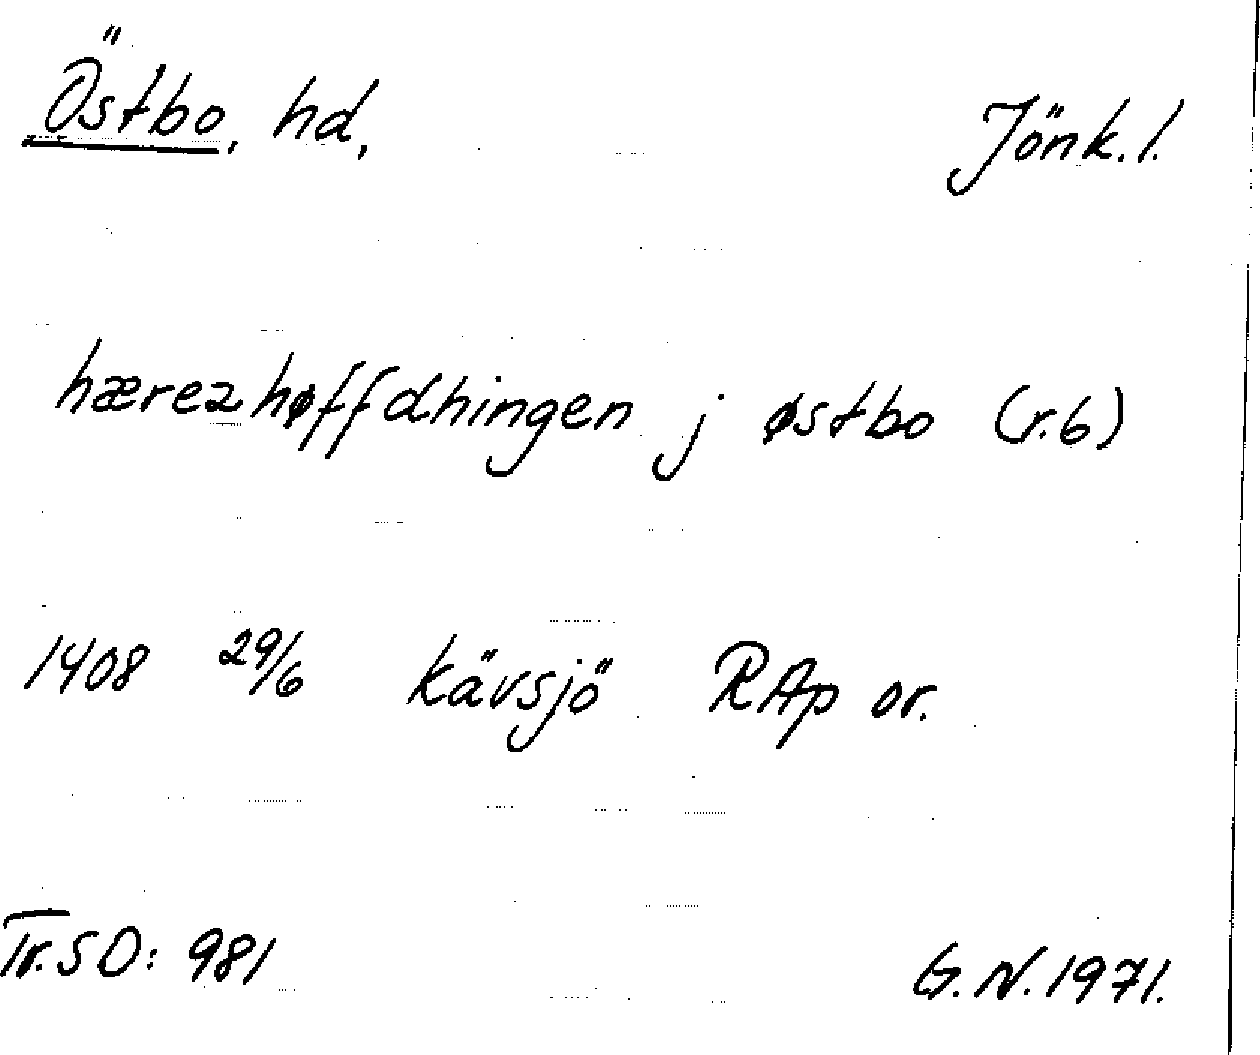 Östbo, hd, Jönk. l.
hærezhøffdhingen j østbo (r.6)
1408 29/6 Kävsjö RAp or.
Tr. SD: 981 G. N. 1971.